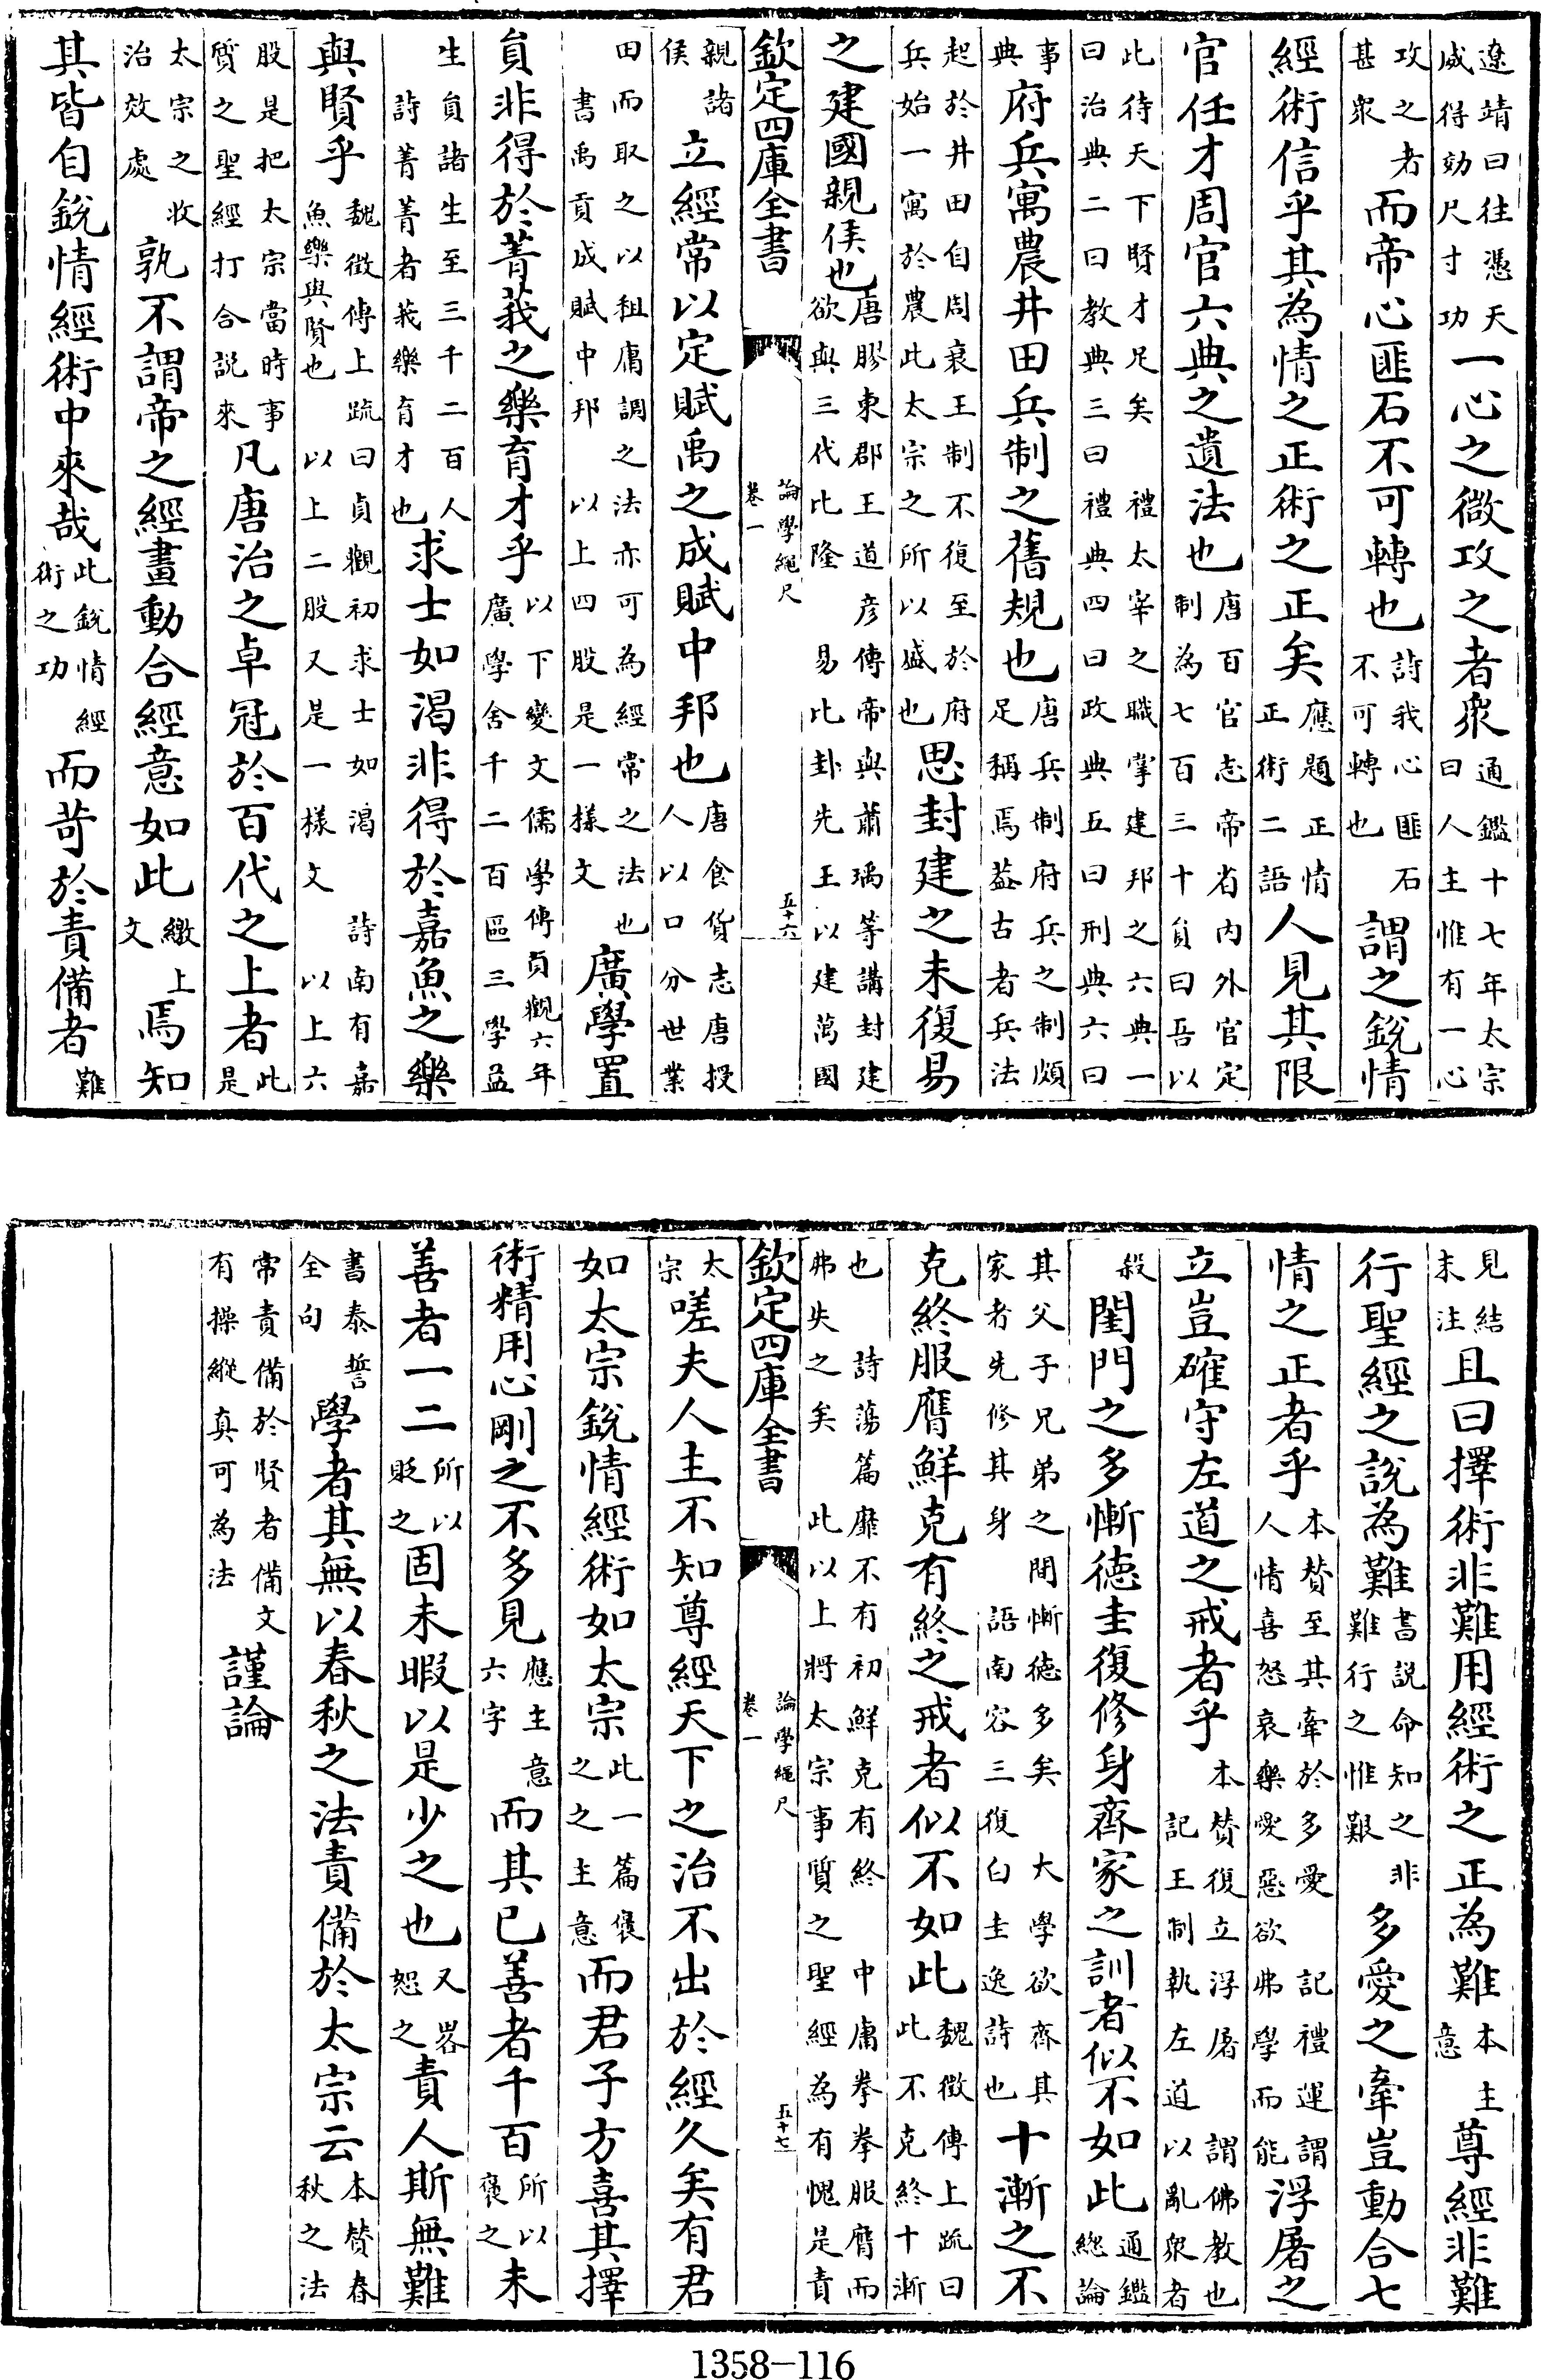 遼靖曰往憑天威得効尺寸功一心之微攻之者衆通鑑十七年太宗曰人主惟有一心
攻之者甚衆而帝心匪石不可轉也詩我心匪石不可轉也謂之銳情
經術信乎其為情之正術之正矣應題正情正術二語人見其限
官任才周官六典之遺法也唐百官志帝省内外官定制為七百三十員曰吾以
此待天下賢才足矣禮太宰之職掌建邦之六典一曰治典二曰教典三曰禮典四曰政典五曰刑典六曰
事典府兵寓農井田兵制之舊規也唐兵制府兵之制頗足稱焉葢古者兵法
起於井田自周衰王制不復至於府兵始一寓於農此太宗之所以盛也思封建之未復易
之建國親侯也唐膠東郡王道彥傳帝與蕭瑀等講封建欲與三代比隆 易比卦先王以建萬國
欽定四庫全書 論學繩尺 卷一 五十六
親諸侯立經常以定賦禹之成賦中邦也唐食貨志唐授人以口分世業
田而取之以租庸調之法亦可為經常之法也書禹貢成賦中邦 以上四股是一樣文廣學置
員非得於菁莪之樂育才乎以下變文儒學傳貞觀六年廣學舍千二百區三學益
生員諸生至三千二百人詩菁菁者莪樂育才也求士如渴非得於嘉魚之樂
與賢乎魏徵傳上䟽曰貞觀初求士如渴 詩南有嘉魚樂與賢也 以上二股又是一樣文 以上六
股是把太宗當時事質之聖經打合說來凡唐治之卓冠於百代之上者此是
太宗之收治效處孰不謂帝之經畫動合經意如此繳上文焉知
其皆自銳情經術中來哉此銳情經術之功而苛於責備者難
見結末注且曰擇術非難用經術之正為難本主意尊經非難
行聖經之說為難書說命知之非難行之惟艱多愛之牽豈動合七
情之正者乎本贊至其牽於多愛 記禮運謂人情喜怒哀樂愛惡欲弗學而能浮屠之
立豈確守左道之戒者乎本贊復立浮屠 謂佛教也記王制執左道以亂衆者
殺閨門之多慚德圭復修身齊家之訓者似不如此通鑑總論
其父子兄弟之閒慚德多矣 大學欲齊其家者先修其身 語南容三復白圭逸詩也十漸之不
克終服膺鮮克有終之戒者似不如此魏徵傳上䟽曰此不克終十漸
也 詩蕩篇靡不有初鮮克有終 中庸拳拳服膺而弗失之矣 此以上將太宗事質之聖經為有愧是責
欽定四庫全書 論學繩尺 卷一 五十七
太宗嗟夫人主不知尊經天下之治不出於經久矣有君
如太宗銳情經術如太宗此一篇褒之之主意而君子方喜其擇
術精用心剛之不多見應主意六字而其已善者千百所以褒之未
善者一二所以貶之固未暇以是少之也又畧恕之責人斯無難
書泰誓全句學者其無以春秋之法責備於太宗云本贊春秋之法
常責備於賢者備文有操縱真可為法謹論
1358-116